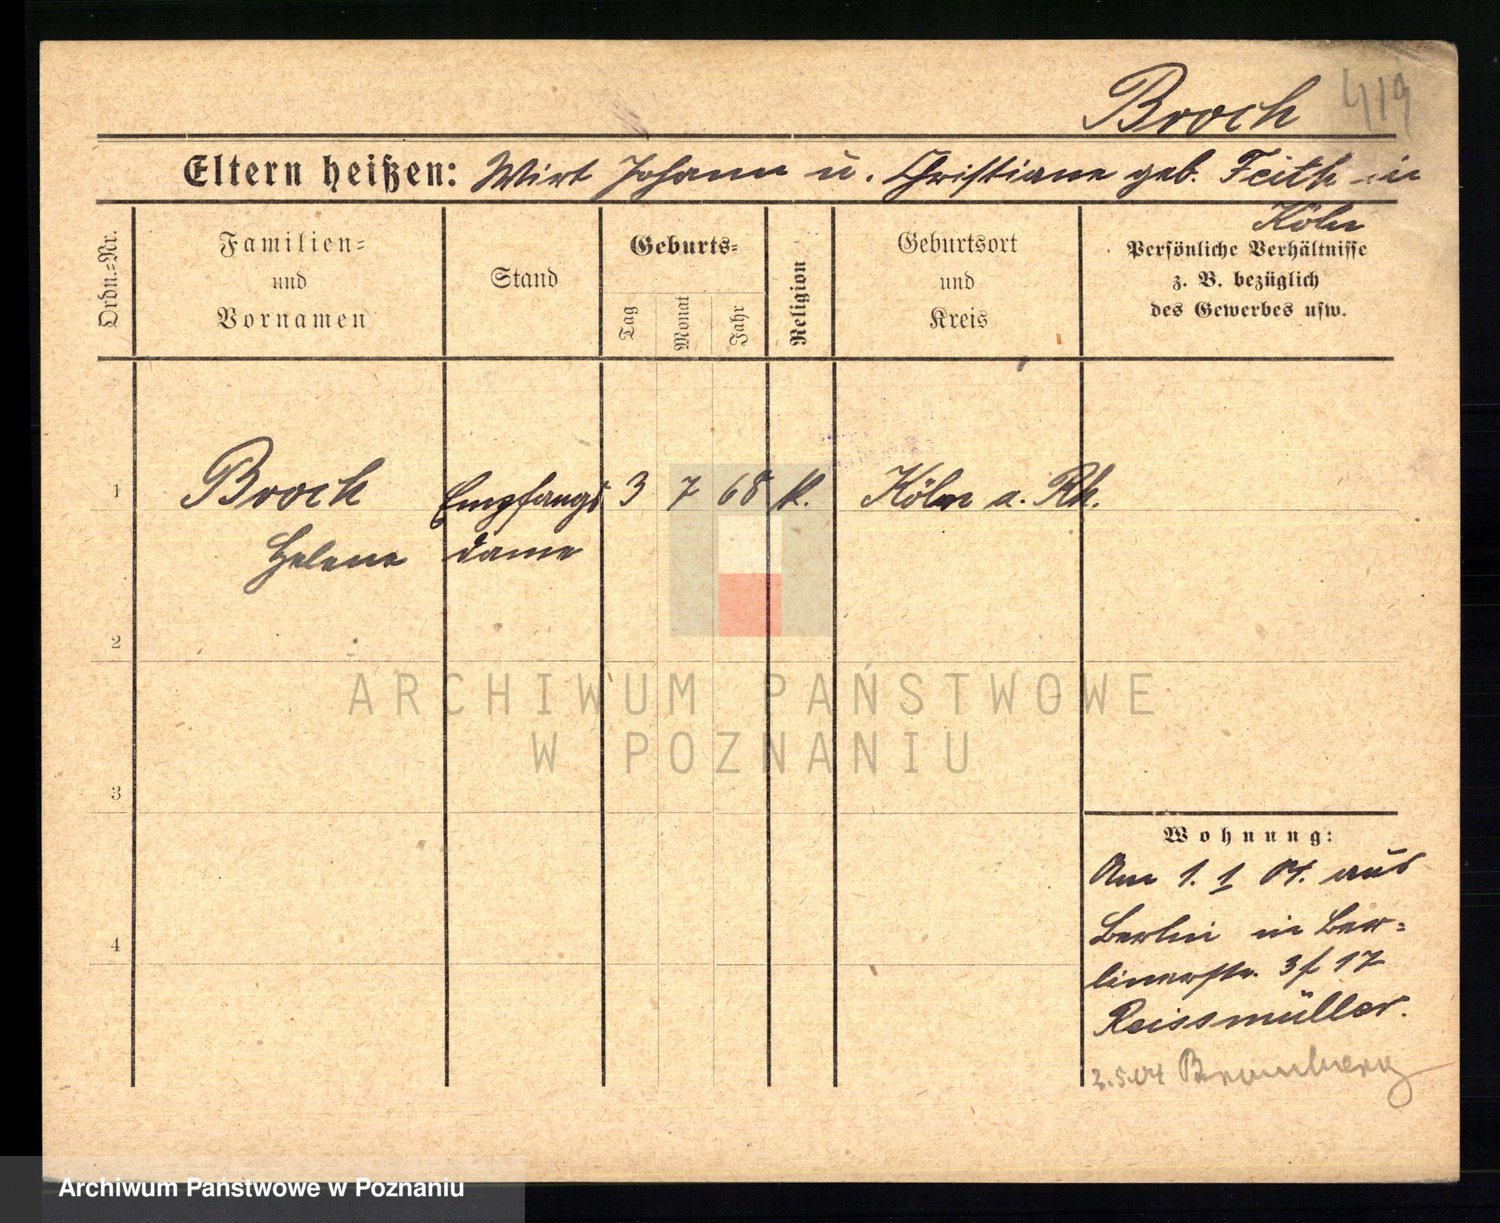 Broch 419
Eltern heißen: Wirt Johann u. Christiane geb. Feith in
Köln
Ordn.=Nr.
Familien=
und
Vornamen
Stand
Geburts=
Tag
Monat
Jahr
Religion
Geburtsort
und
Kreis
Persönliche Verhältnisse
z. B. bezüglich
des Gewerbes usw.
1 Broch Empfangs 3 7 68 k. Köln a. Rh.
Helene dame
2
ARCHIWUM PAŃSTWOWE
W POZNANIU
3
Wohnung:
Am 1. 1 04. aus
Berlin in Ber=
4
linerstr. 3 f 17
Reissmüller.
2.5.04 Bromberg
Archiwum Państwowe w Poznaniu